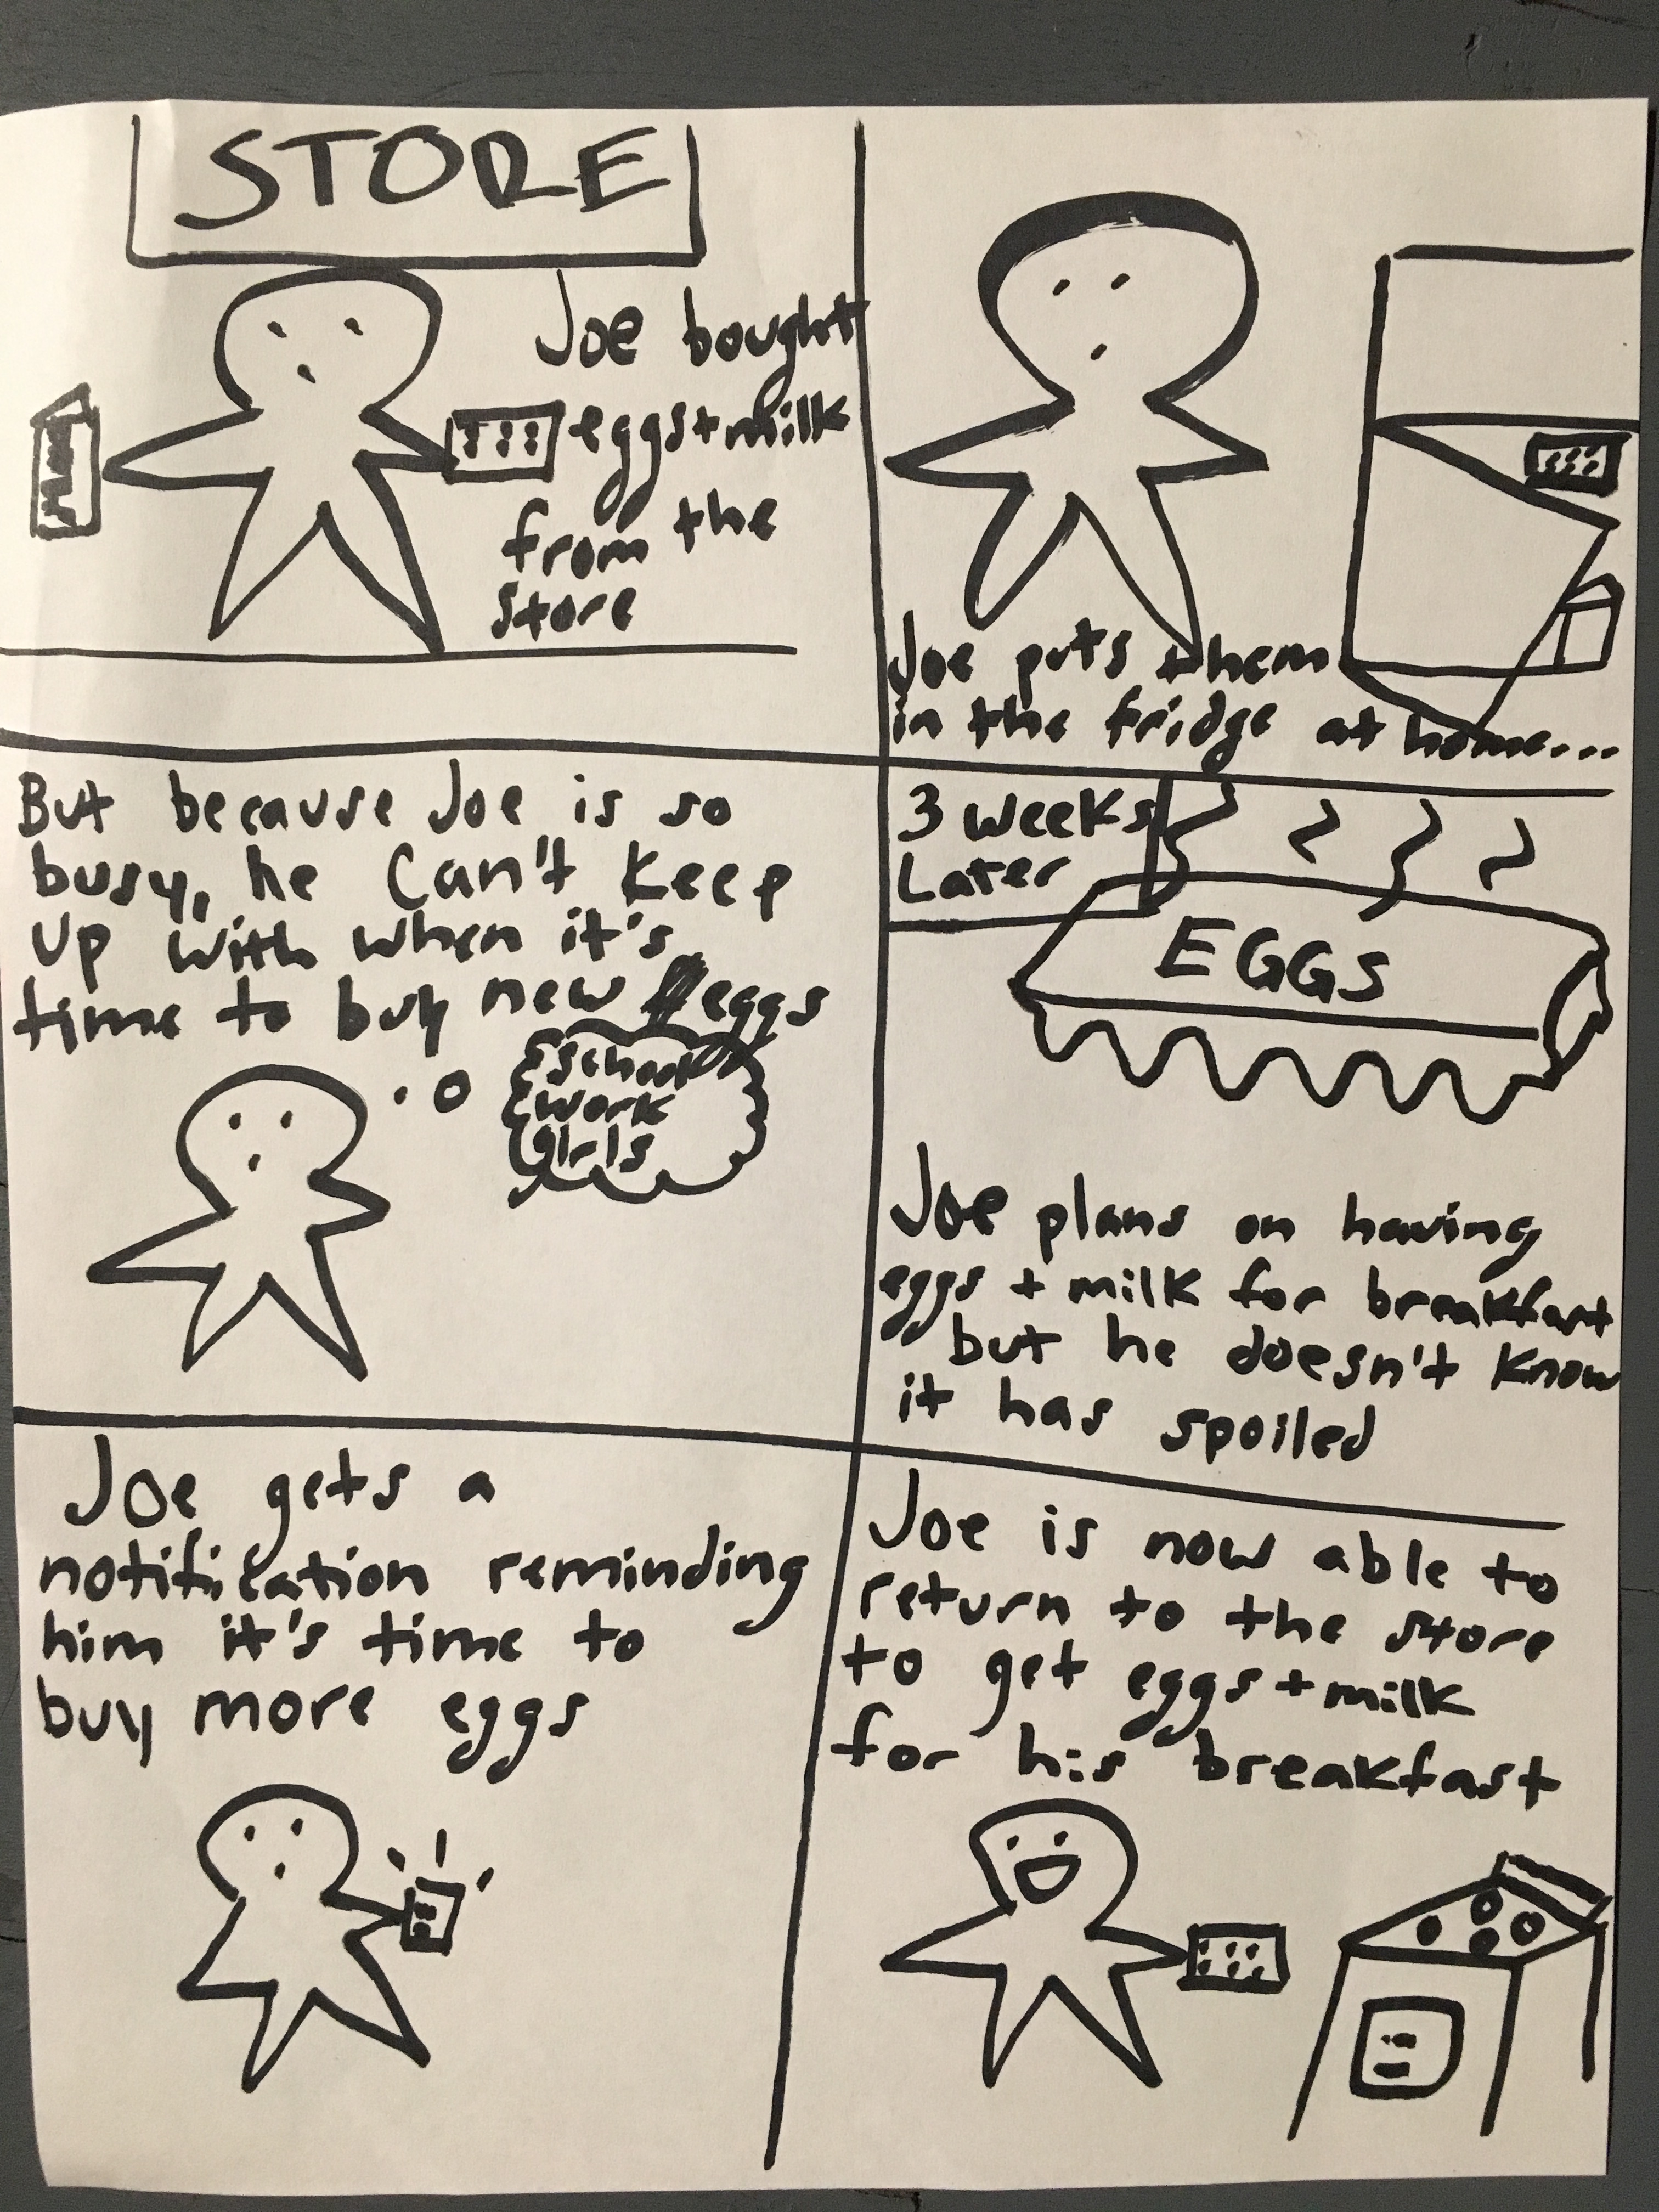 STORE
Joe bought
eggs + milk
from the
store
Joe puts them
in the fridge at home...
But because Joe is so
busy, he can't keep
up with when it's
time to buy new eggs
school
work
girls
3 weeks
Later
EGGS
Joe plans on having
eggs + milk for breakfast
but he doesn't know
it has spoiled
Joe gets a
notification reminding
him it's time to
buy more eggs
Joe is now able to
return to the store
to get eggs + milk
for his breakfast